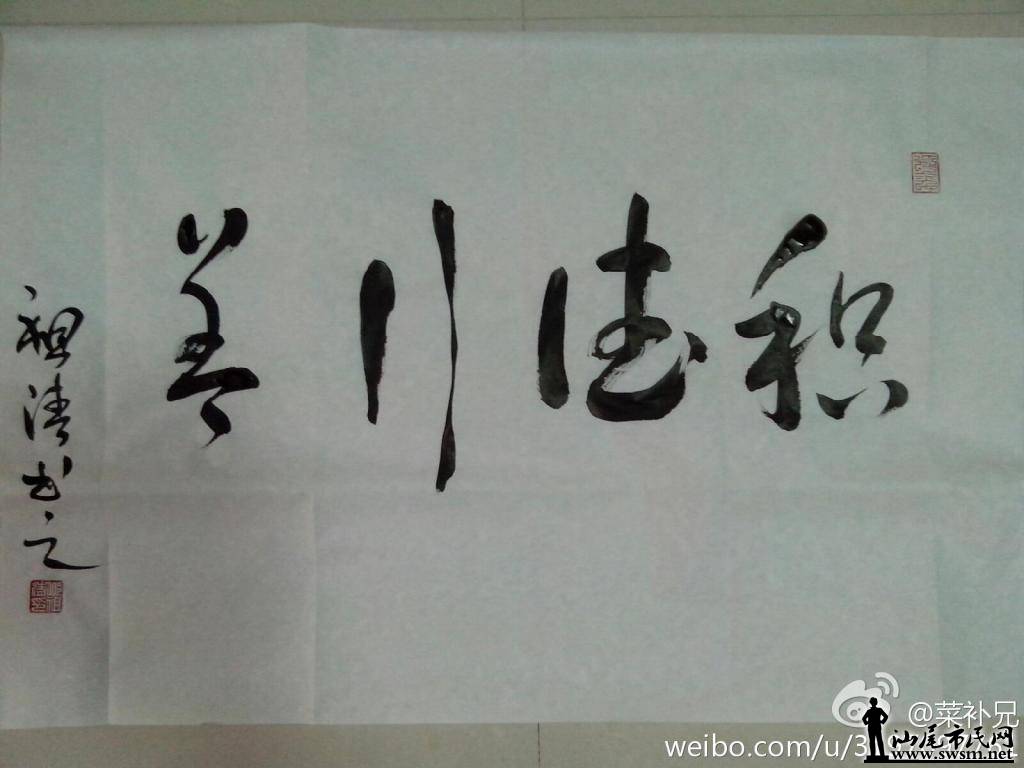 积德行善
祖清书之
@菜补兄
weibo.com/u/3
汕尾市民网
www.swsm.net